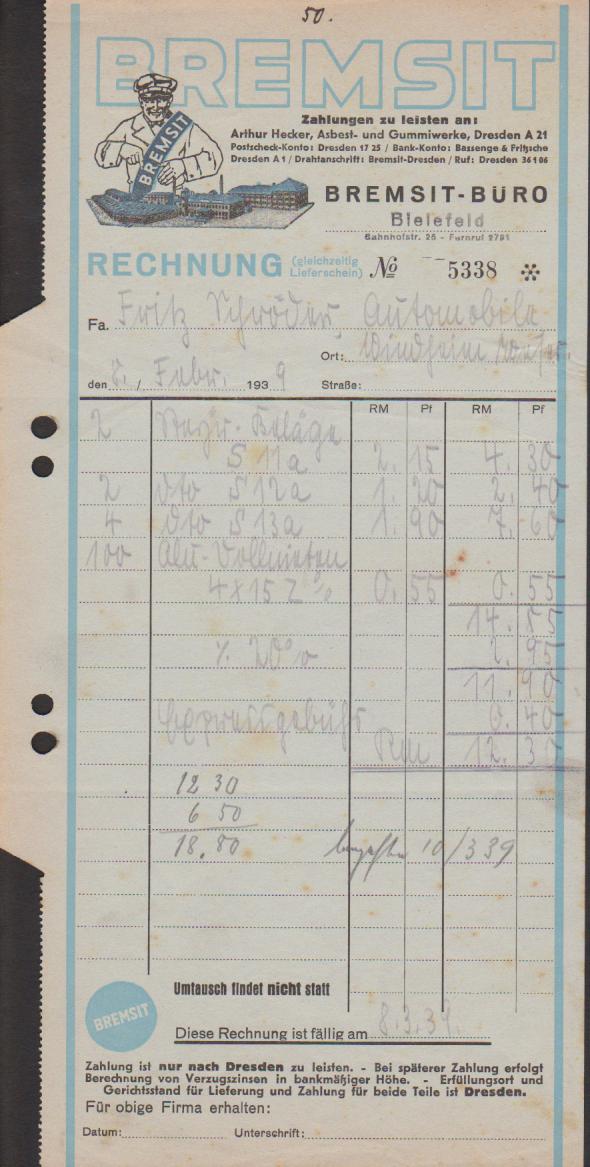 50.
BREMSIT
BREMSIT
Zahlungen zu leisten an:
Arthur Hecker, Asbest- und Gummiwerke, Dresden A 21
Postscheck-Konto: Dresden 17 25 / Bank-Konto: Bassenge & Fritzsche
Dresden A 1 / Drahtanschrift: Bremsit-Dresden / Ruf: Dresden 36106
BREMSIT-BÜRO
Bielefeld
Bahnhofstr. 25 - Fernruf 2791
RECHNUNG (gleichzeitig Lieferschein) No 5338 *
Fa. Fritz Schröder, Automobile
Ort: Windheim Weser.
den 7. Febr. 1939 Straße:
RM Pf RM Pf
2 Beläge
S 11a 2. 15 4. 30
2 dto S 12a 1. 20 2. 40
4 dto S 13a 1. 90 7. 60
100 Alu-Vollnieten
4x15 Z % 0. 55 0. 55
14. 85
%. 20% 2. 95
11. 90
Expressgebühr 0. 40
RM 12. 30
12 30
6 50
18.80 10/3 39
Umtausch findet nicht statt
BREMSIT
Diese Rechnung ist fällig am 8.3.39.
Zahlung ist nur nach Dresden zu leisten. - Bei späterer Zahlung erfolgt
Berechnung von Verzugszinsen in bankmäßiger Höhe. - Erfüllungsort und
Gerichtsstand für Lieferung und Zahlung für beide Teile ist Dresden.
Für obige Firma erhalten:
Datum: Unterschrift: